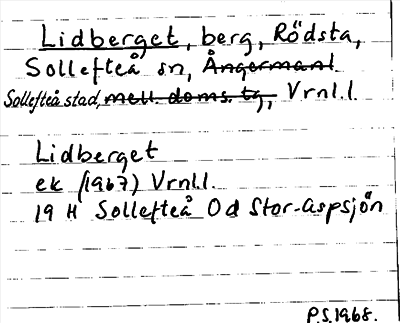 Lidberget, berg, Rödsta,
Sollefteå sn, Ångermanl.
Sollefteå stad, mell. doms. tg, Vrnl.l.
Lidberget
ek (1967) Vrnl.l.
19 H Sollefteå Od Stor-Aspsjön
P.S.1968.